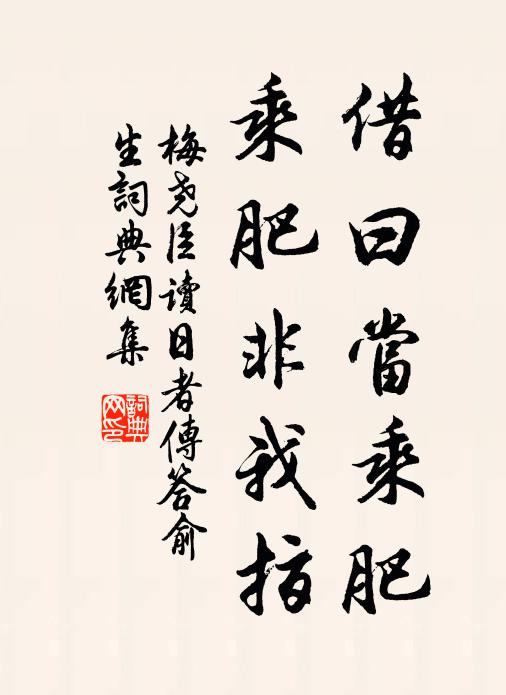 借曰當乘肥
乘肥非我指
梅尧臣讀日者傳答俞
生詞典網集
詞典网印